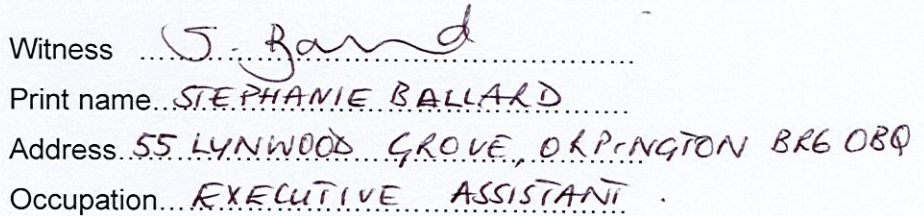 Witness S. Ballard
Print name STEPHANIE BALLARD
Address 55 LYNWOOD GROVE, ORPINGTON BR6 0BQ
Occupation EXECUTIVE ASSISTANT.